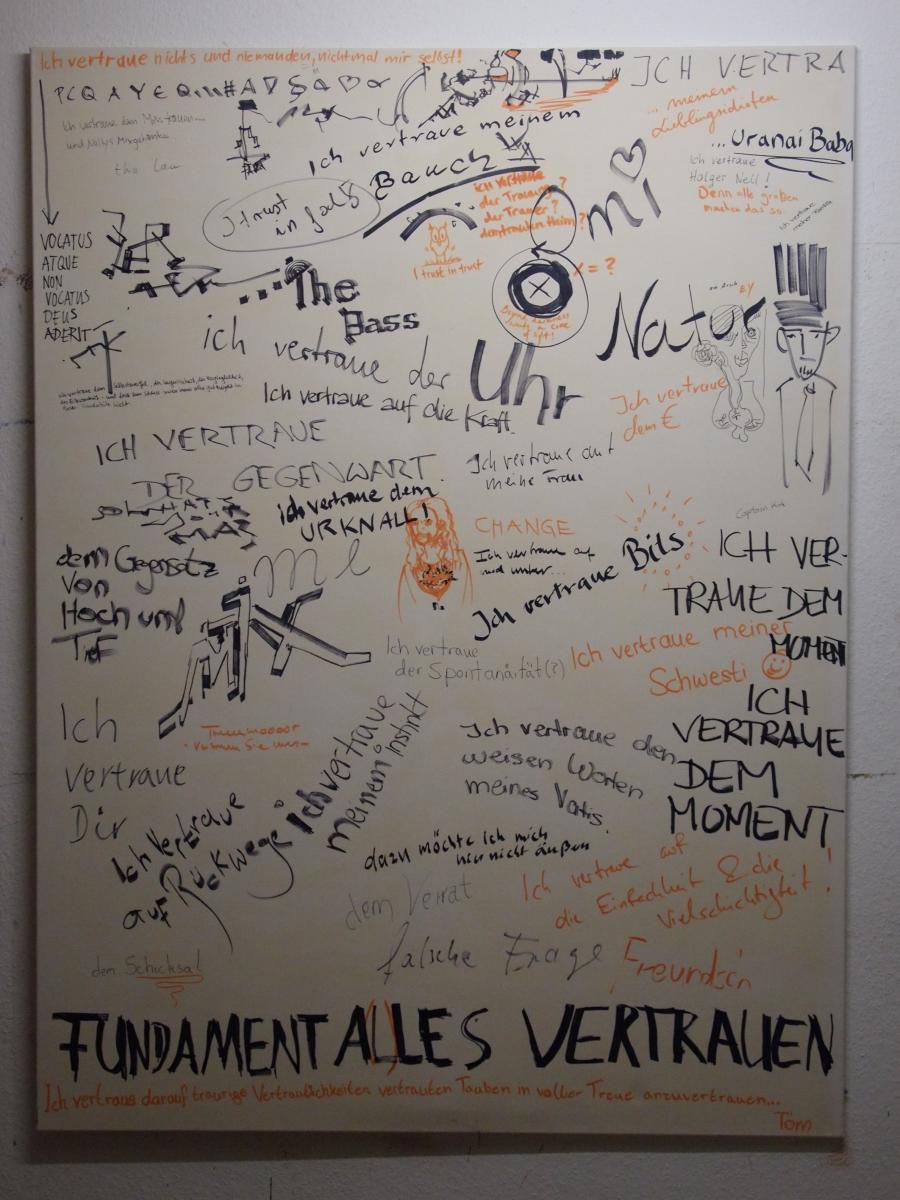 Ich vertraue nichts und niemanden, nichtmal mir selbst!
ICH VERTRA
... meinem
Lieblingsidioten
Ich vertraue dem
und Nollys
the law
Ich vertraue meinem
Bauch
... Uranai Baba
Ich vertraue
Holger Nell!
Denn alle großen
machen das so.
Ich vertraue
meiner
I trust
in
ich vertraue
der Trauung?
der Trauer?
dem trauten Heim?
I trust in trust
mi
x = ?
VOCATUS
ATQUE
NON
VOCATUS
DEUS
ADERIT
... The
Bass
Natur
EY
ich vertraue der
Uhr
Ich vertraue auf die Kraft.
Ich vertraue
dem €
ICH VERTRAUE
DER GEGENWART.
Ich vertraue auf
meine Frau
ich vertraue dem
URKNALL!
CHANGE
Ich vertraue auf
und unter...
Captain
dem Gegensatz
von
Hoch und
Tief
Ich vertraue Bils
ICH VER-
TRAUE DEM
MOMENT
Ich vertraue
der Spontanäität(?)
Ich vertraue meiner
Schwesti
ICH
VERTRAUE
DEM
MOMENT
Ich
vertraue
Dir
ich vertraue
meinem Instinkt
Ich vertraue den
weisen Worten
meines Vatis.
Ich vertraue
auf Rückwege
dazu möchte ich mich
hier nicht äußern
Ich vertraue auf
die Einfachheit & die
Vielschichtigkeit!
dem Verrat
falsche Frage
Freundin
dem Schicksal
FUNDAMENTALLES VERTRAUEN
Ich vertraue darauf traurige Vertraulichkeiten vertrauten Tauben in voller Treue anzuvertrauen...
Töm